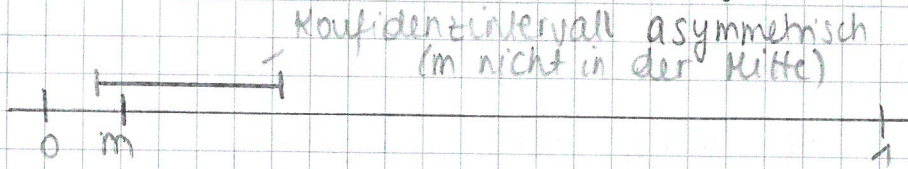 Konfidenzintervall asymmetrisch
(m nicht in der Mitte)
0 m 1